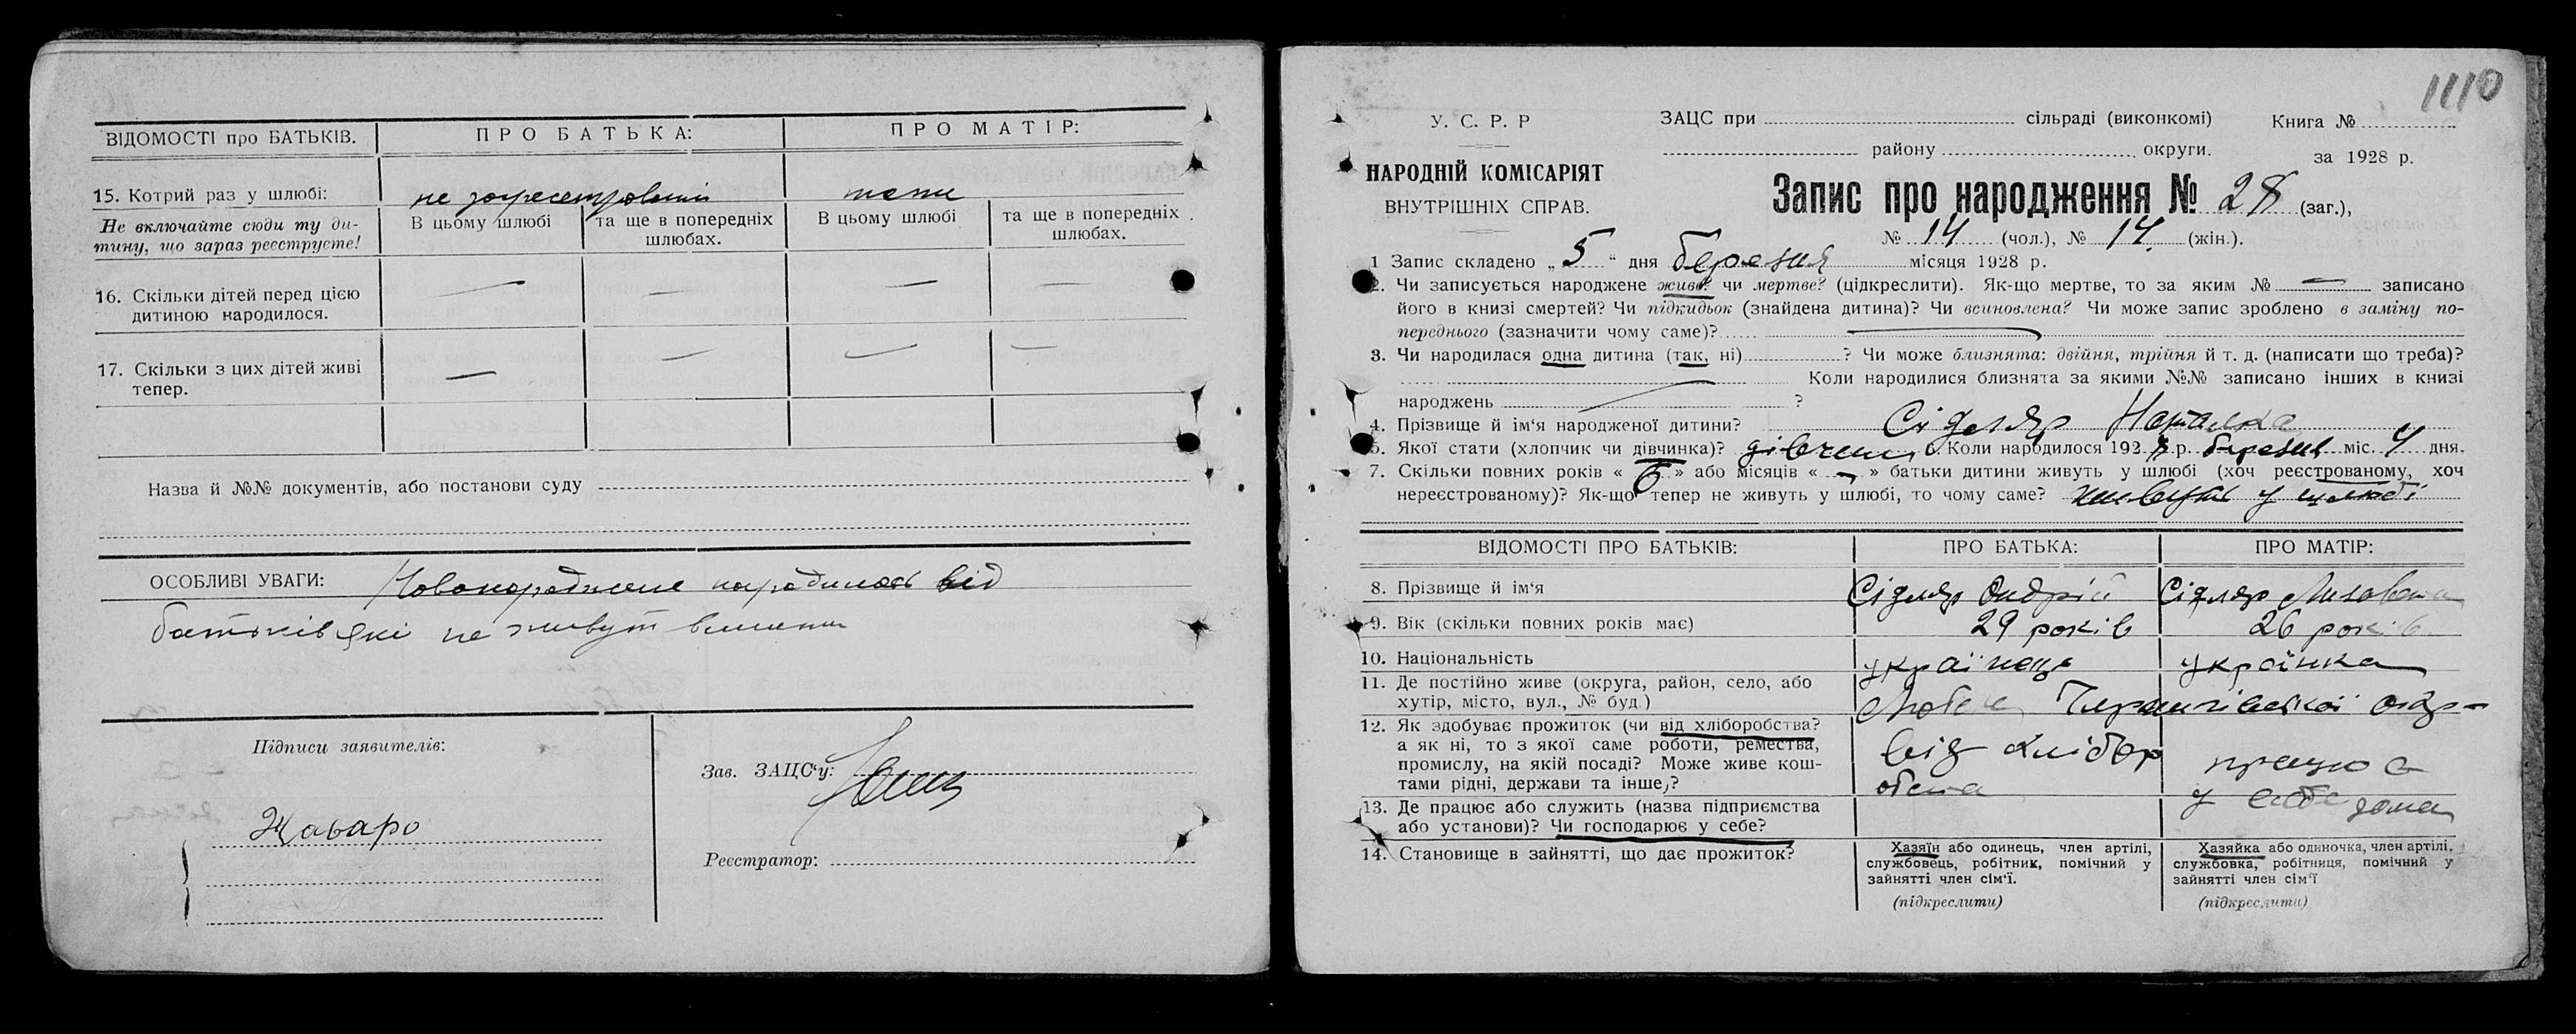 ВІДОМОСТІ про БАТЬКІВ. ПРО БАТЬКА: ПРО МАТІР:
15. Котрий раз у шлюбі: не
Не включайте сюди ту ди-
тину, що зараз реєструєте!
В цьому шлюбі та ще в попередніх шлюбах. В цьому шлюбі та ще в попередніх шлюбах.
16. Скільки дітей перед цією — — — —
дитиною народилося.
17. Скільки з цих дітей живі — — — —
тепер.
Назва й №№ документів, або постанови суду
ОСОБЛИВІ УВАГИ: Новонароджене народилось від
батьків які не живут
Підписи заявителів:
Зав. ЗАЦС'у:
Реєстратор:
1110
У. С. Р. Р
НАРОДНІЙ КОМІСАРІЯТ
ВНУТРІШНІХ СПРАВ.
ЗАЦС при сільраді (виконкомі) Книга №
району округи. за 1928 р.
Запис про народження № 28 (заг.),
№ 14 (чол.), № 14. (жін.).
1 Запис складено „5“ дня березня місяця 1928 р.
2. Чи записується народжене живе? чи мертве? (цідкреслити). Як-що мертве, то за яким № — записано
його в книзі смертей? Чи підкидьок (знайдена дитина)? Чи всиновлена? Чи може запис зроблено в заміну по-
переднього (зазначити чому саме)?
3. Чи народилася одна дитина (так, ні) ? Чи може близнята: двійня, трійня й т. д. (написати що треба)?
Коли народилися близнята за якими №№ записано інших в книзі
народжень ?
4. Прізвище й ім‘я народженої дитини? Сідляр Наталка
5. Якої стати (хлопчик чи дівчинка)? 6. Коли народилося 1928 р. березня міс. 4 дня.
7. Скільки повних років « 6 » або місяців « — » батьки дитини живуть у шлюбі (хоч реєстрованому, хоч
нереєстрованому)? Як-що тепер не живуть у шлюбі, то чому саме? живуть у шлюбі
ВІДОМОСТІ ПРО БАТЬКІВ: ПРО БАТЬКА: ПРО МАТІР:
8. Прізвище й ім‘я Сідляр Андрій Сідляр Лизавета
9. Вік (скільки повних років має) 29 років 26 років
10. Національність українець українка
11. Де постійно живе (округа, район, село, або
хутір, місто, вул., № буд.) Любеч Чернигівської окр-
12. Як здобуває прожиток (чи від хліборобства?
а як ні, то з якої саме роботи, ремества,
промислу, на якій посаді? Може живе кош-
тами рідні, держави та інше,? від хлібор
13. Де працює або служить (назва підприємства
або установи)? Чи господарює у себе? працює
у себе дома
14. Становище в зайнятті, що дає прожиток?
Хазяїн або одинець, член артілі,
службовець, робітник, помічний у
зайнятті член сім‘ї.
(підкреслити)
Хазяйка або одиночка, член артілі,
службовка, робітниця, помічний у
зайнятті член сім‘ї
(підкреслити)